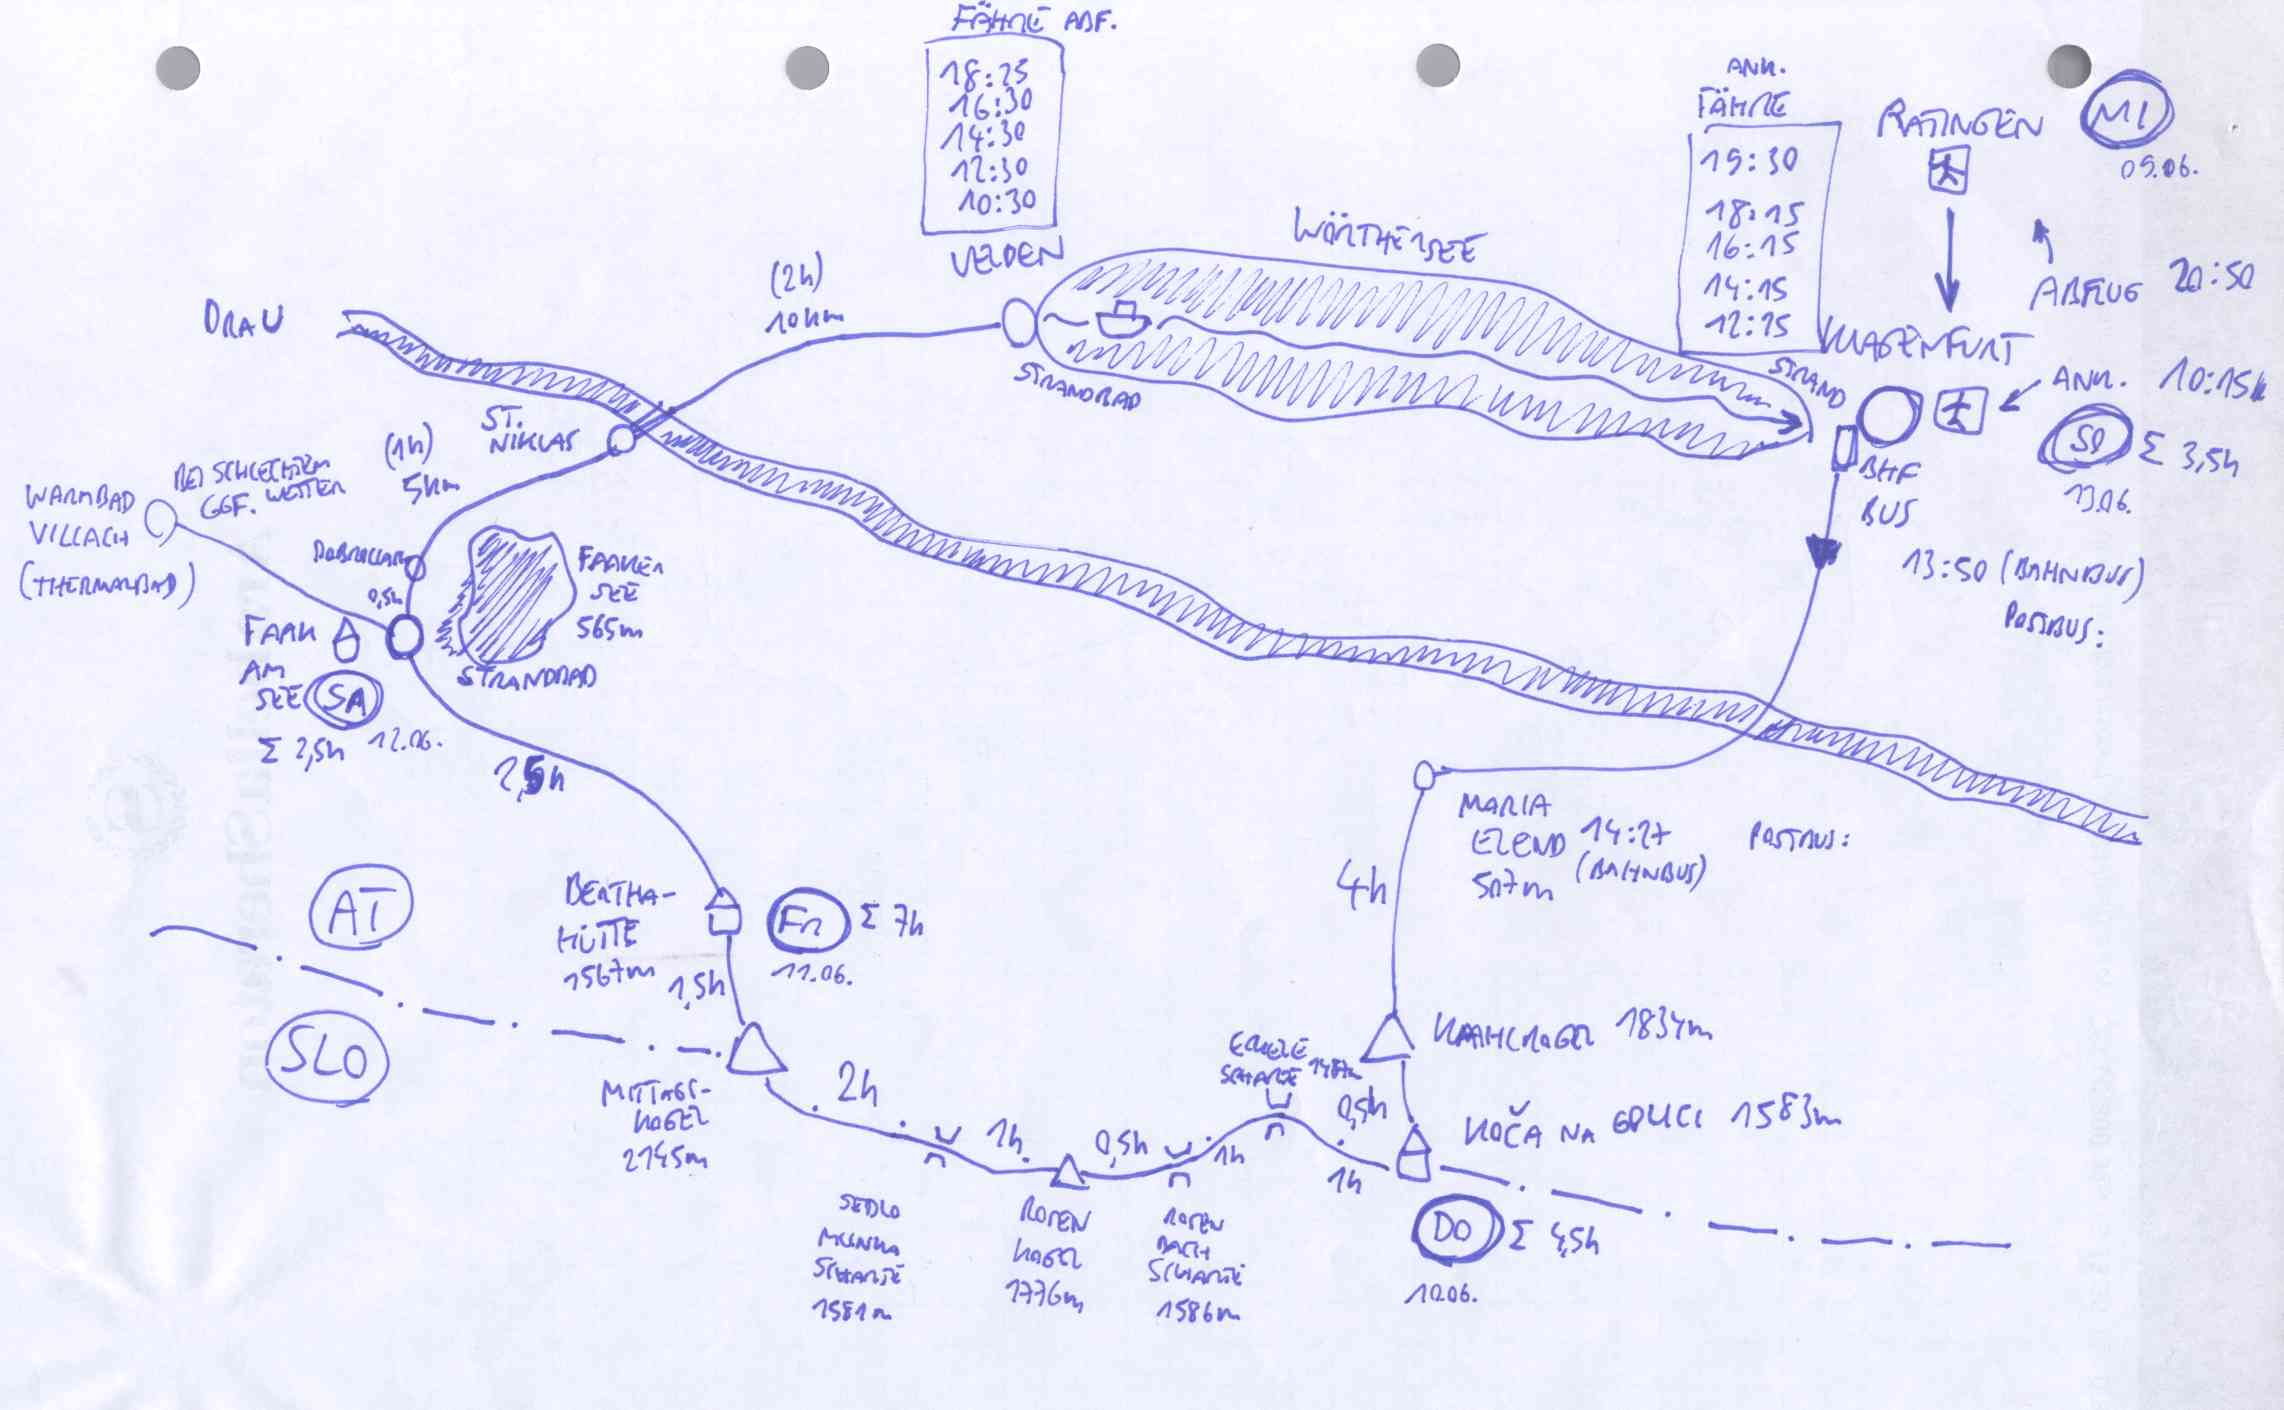 FÄHRE ABF.
18:25
16:30
14:30
12:30
10:30
VELDEN
STRANDBAD
WÖRTHERSEE
ANK.
FÄHRE
19:30
18:15
16:15
14:15
12:15
RATINGEN
MI
09.06.
ABFLUG 20:50
KLAGENFURT
STRAND
ANK. 10:15h
SO
Σ 3,5h
13.06.
BHF
BUS
13:50 (BAHNBUS)
POSTBUS:
DRAU
(2h)
10km
ST.
NIKLAS
(1h)
5km
BEI SCHLECHTEM
GGF. WETTER
WARMBAD
VILLACH
(THERMALBAD)
0,5h
FAAKER
SEE
565m
STRANDBAD
FAAK
AM
SEE
SA
Σ 2,5h
12.06.
2,5h
MARIA
ELEND 14:27
(BAHNBUS)
507m
POSTBUS:
4h
AT
SLO
BERTHA-
HÜTTE
1567m
Fr
Σ 7h
11.06.
1,5h
MITTAGS-
KOGEL
2145m
2h
SEDLO
SCHARTE
1581m
1h
ROSEN
KOGEL
1776m
0,5h
ROSEN
BACH
SCHARTE
1586m
1h
SCHARTE
1h
0,5h
KAHLKOGEL 1834m
KOČA NA GOLICI 1583m
DO
Σ 4,5h
10.06.